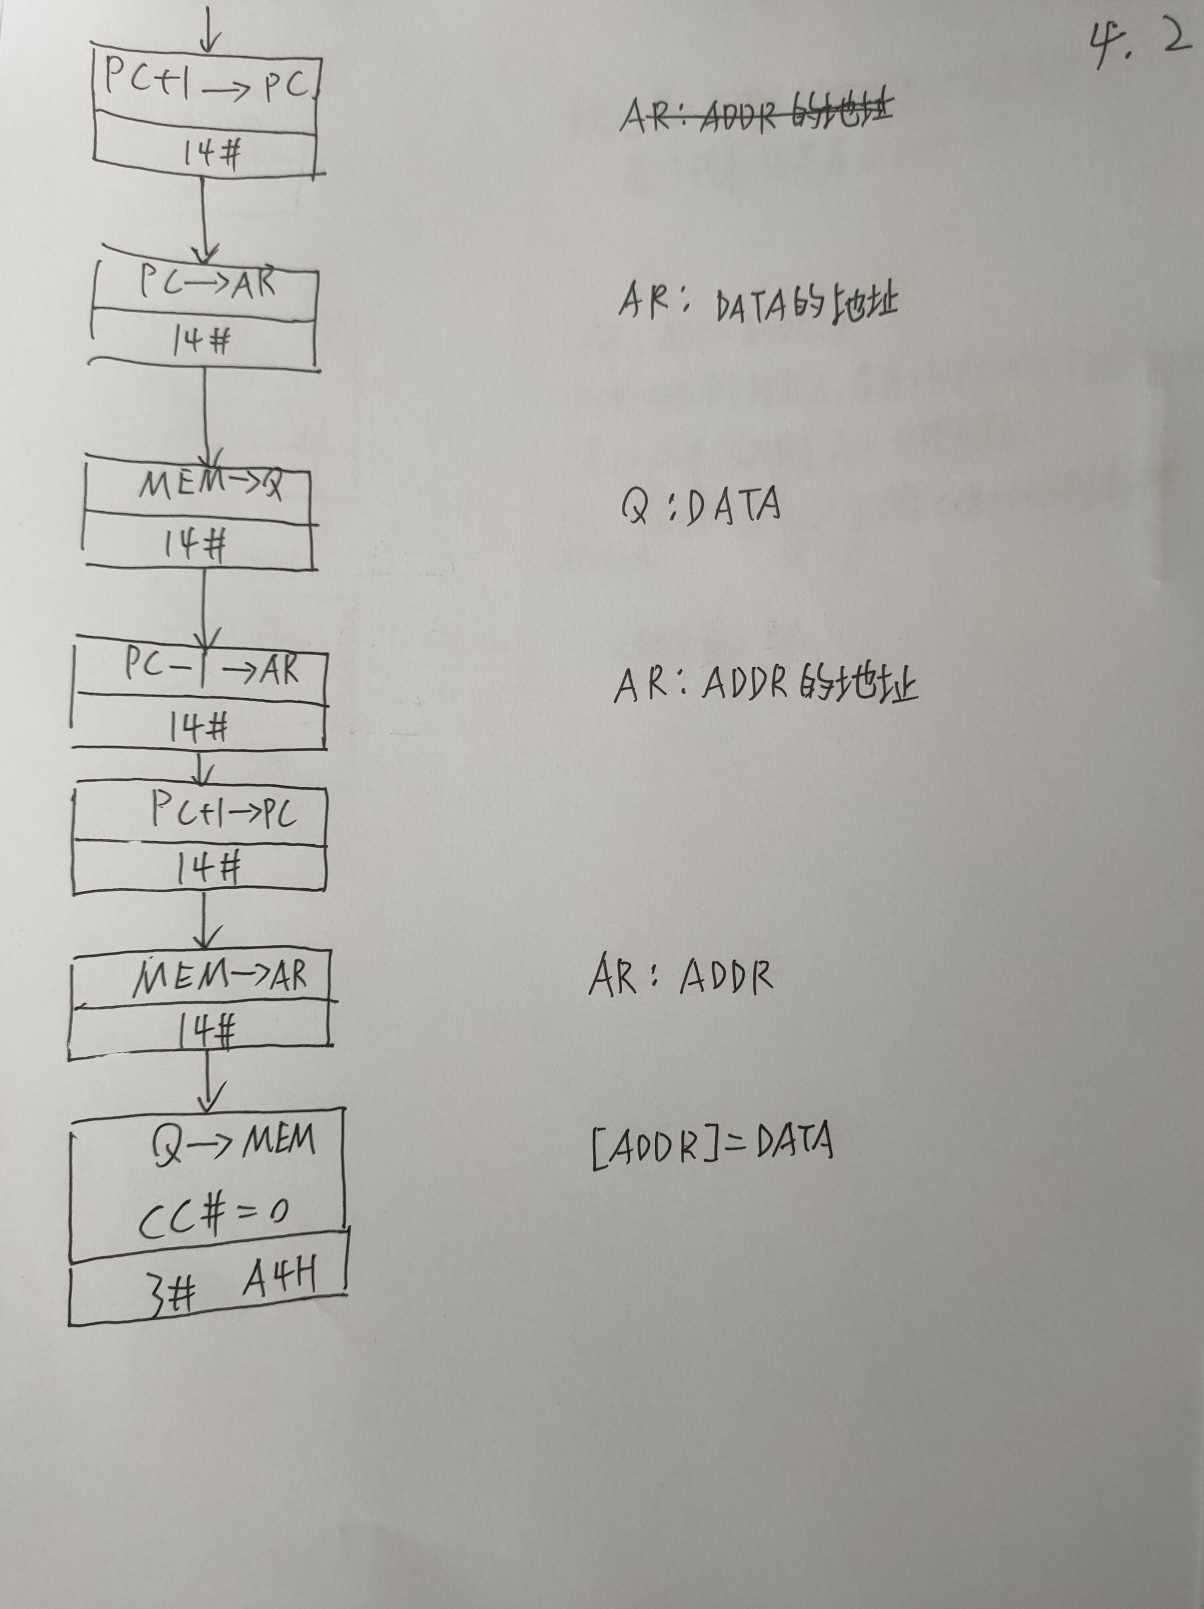 4.2
PC+1→PC
14#
AR:ADDR的地址
PC→AR
14#
AR:DATA的地址
MEM→Q
14#
Q:DATA
PC-1→AR
14#
AR:ADDR的地址
PC+1→PC
14#
MEM→AR
14#
AR:ADDR
Q→MEM
CC#=0
3# A4H
[ADDR]=DATA